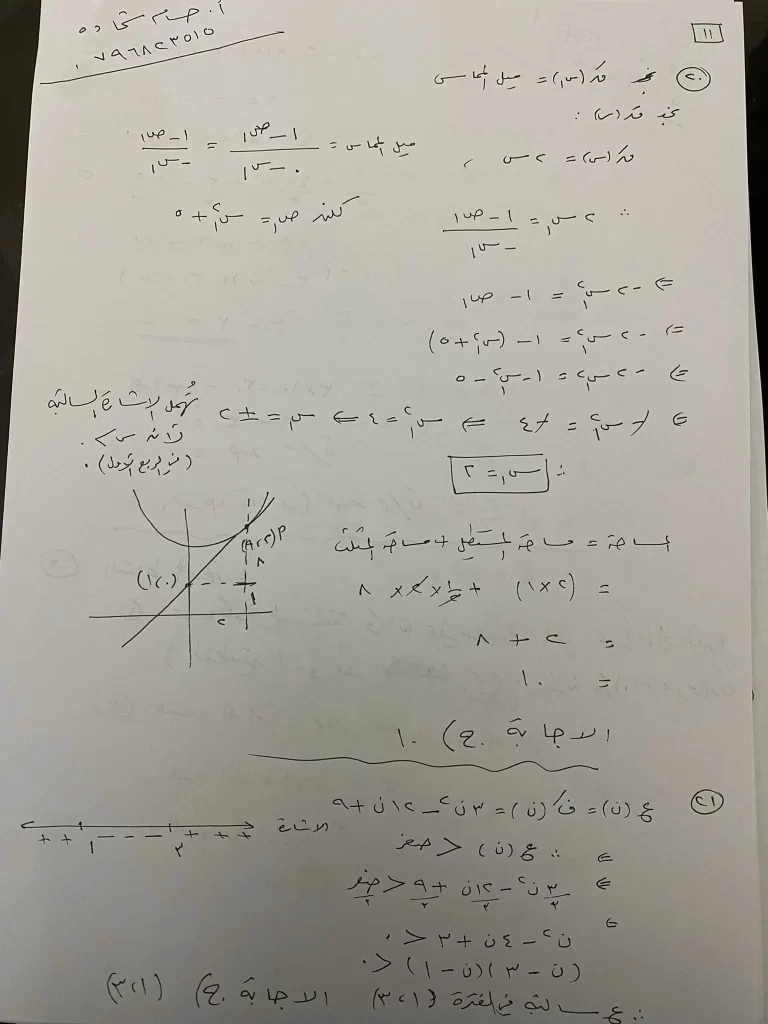 أ. حسام شحاده
٠٧٩٦٨٢٣٥١٥
١١
٢٠ نجد قَ(س١) = ميل المماس
نجد قَ(س) :
قَ(س) = ٢س ،
ميل المماس = ١ - ص١ / ٠ - س١ = ١ - ص١ / - س١
∴ ٢س١ = ١ - ص١ / - س١
لكن ص١ = س١² + ٥
⇐ -٢س١² = ١ - ص١
⇐ -٢س١² = ١ - (س١² + ٥)
⇐ -٢س١² = ١ - س١² - ٥
⇐ -س١² = -٤ ⇐ س١² = ٤ ⇐ س١ = ±٢
تُهمل الاشارة السالبة
لأنه س > ٠
(في الربع الأول) .
∴ س١ = ٢
المساحة = مساحة المستطيل + مساحة المثلث
= (٢×١) + ١/٢ × ٢ × ٨
= ٢ + ٨
= ١٠
أ(٢،٩)
٨
(٠،١)
١
٢
الاجابة ج) ١٠
٢١ ع(ن) = فَ(ن) = ٣ن² - ١٢ن + ٩
⇐ ∴ ع(ن) < صفر
الاشارة
+ + ١ - - - ٣ + + +
⇐ ٣ن²/٣ - ١٢ن/٣ + ٩/٣ < صفر/٣
⇐ ن² - ٤ن + ٣ < ٠
(ن - ٣)(ن - ١) < ٠
∴ ع سالبة في الفترة (١،٣) الاجابة ج) (١،٣)